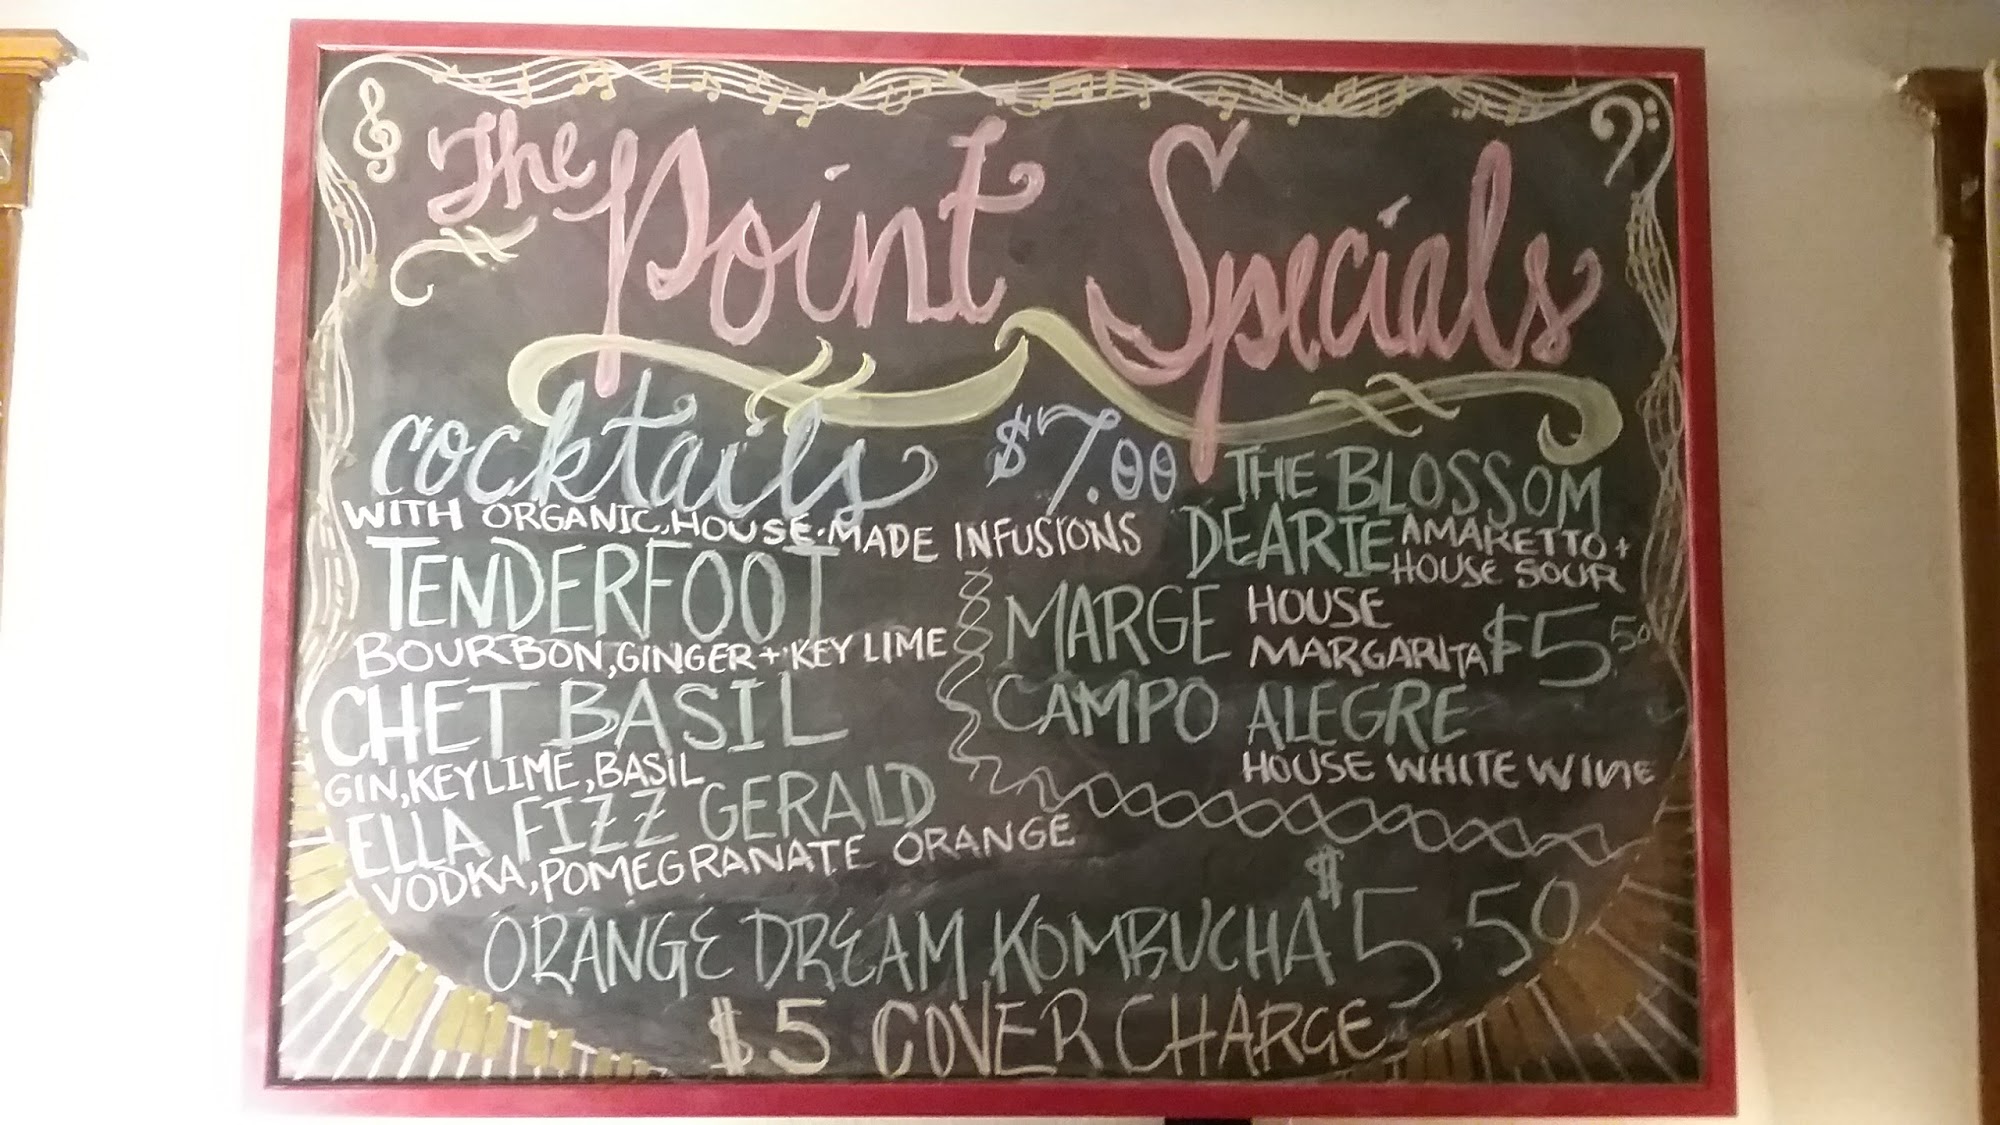 The Point Specials
cocktails $7.00
WITH ORGANIC, HOUSE-MADE INFUSIONS
TENDERFOOT
BOURBON, GINGER + KEY LIME
CHET BASIL
GIN, KEY LIME, BASIL
ELLA FIZZ GERALD
VODKA, POMEGRANATE ORANGE
THE BLOSSOM
DEARIE AMARETTO +
HOUSE SOUR
MARGE HOUSE
MARGARITA $5.50
CAMPO ALEGRE
HOUSE WHITE WINE
ORANGE DREAM KOMBUCHA $5.50
$5 COVER CHARGE